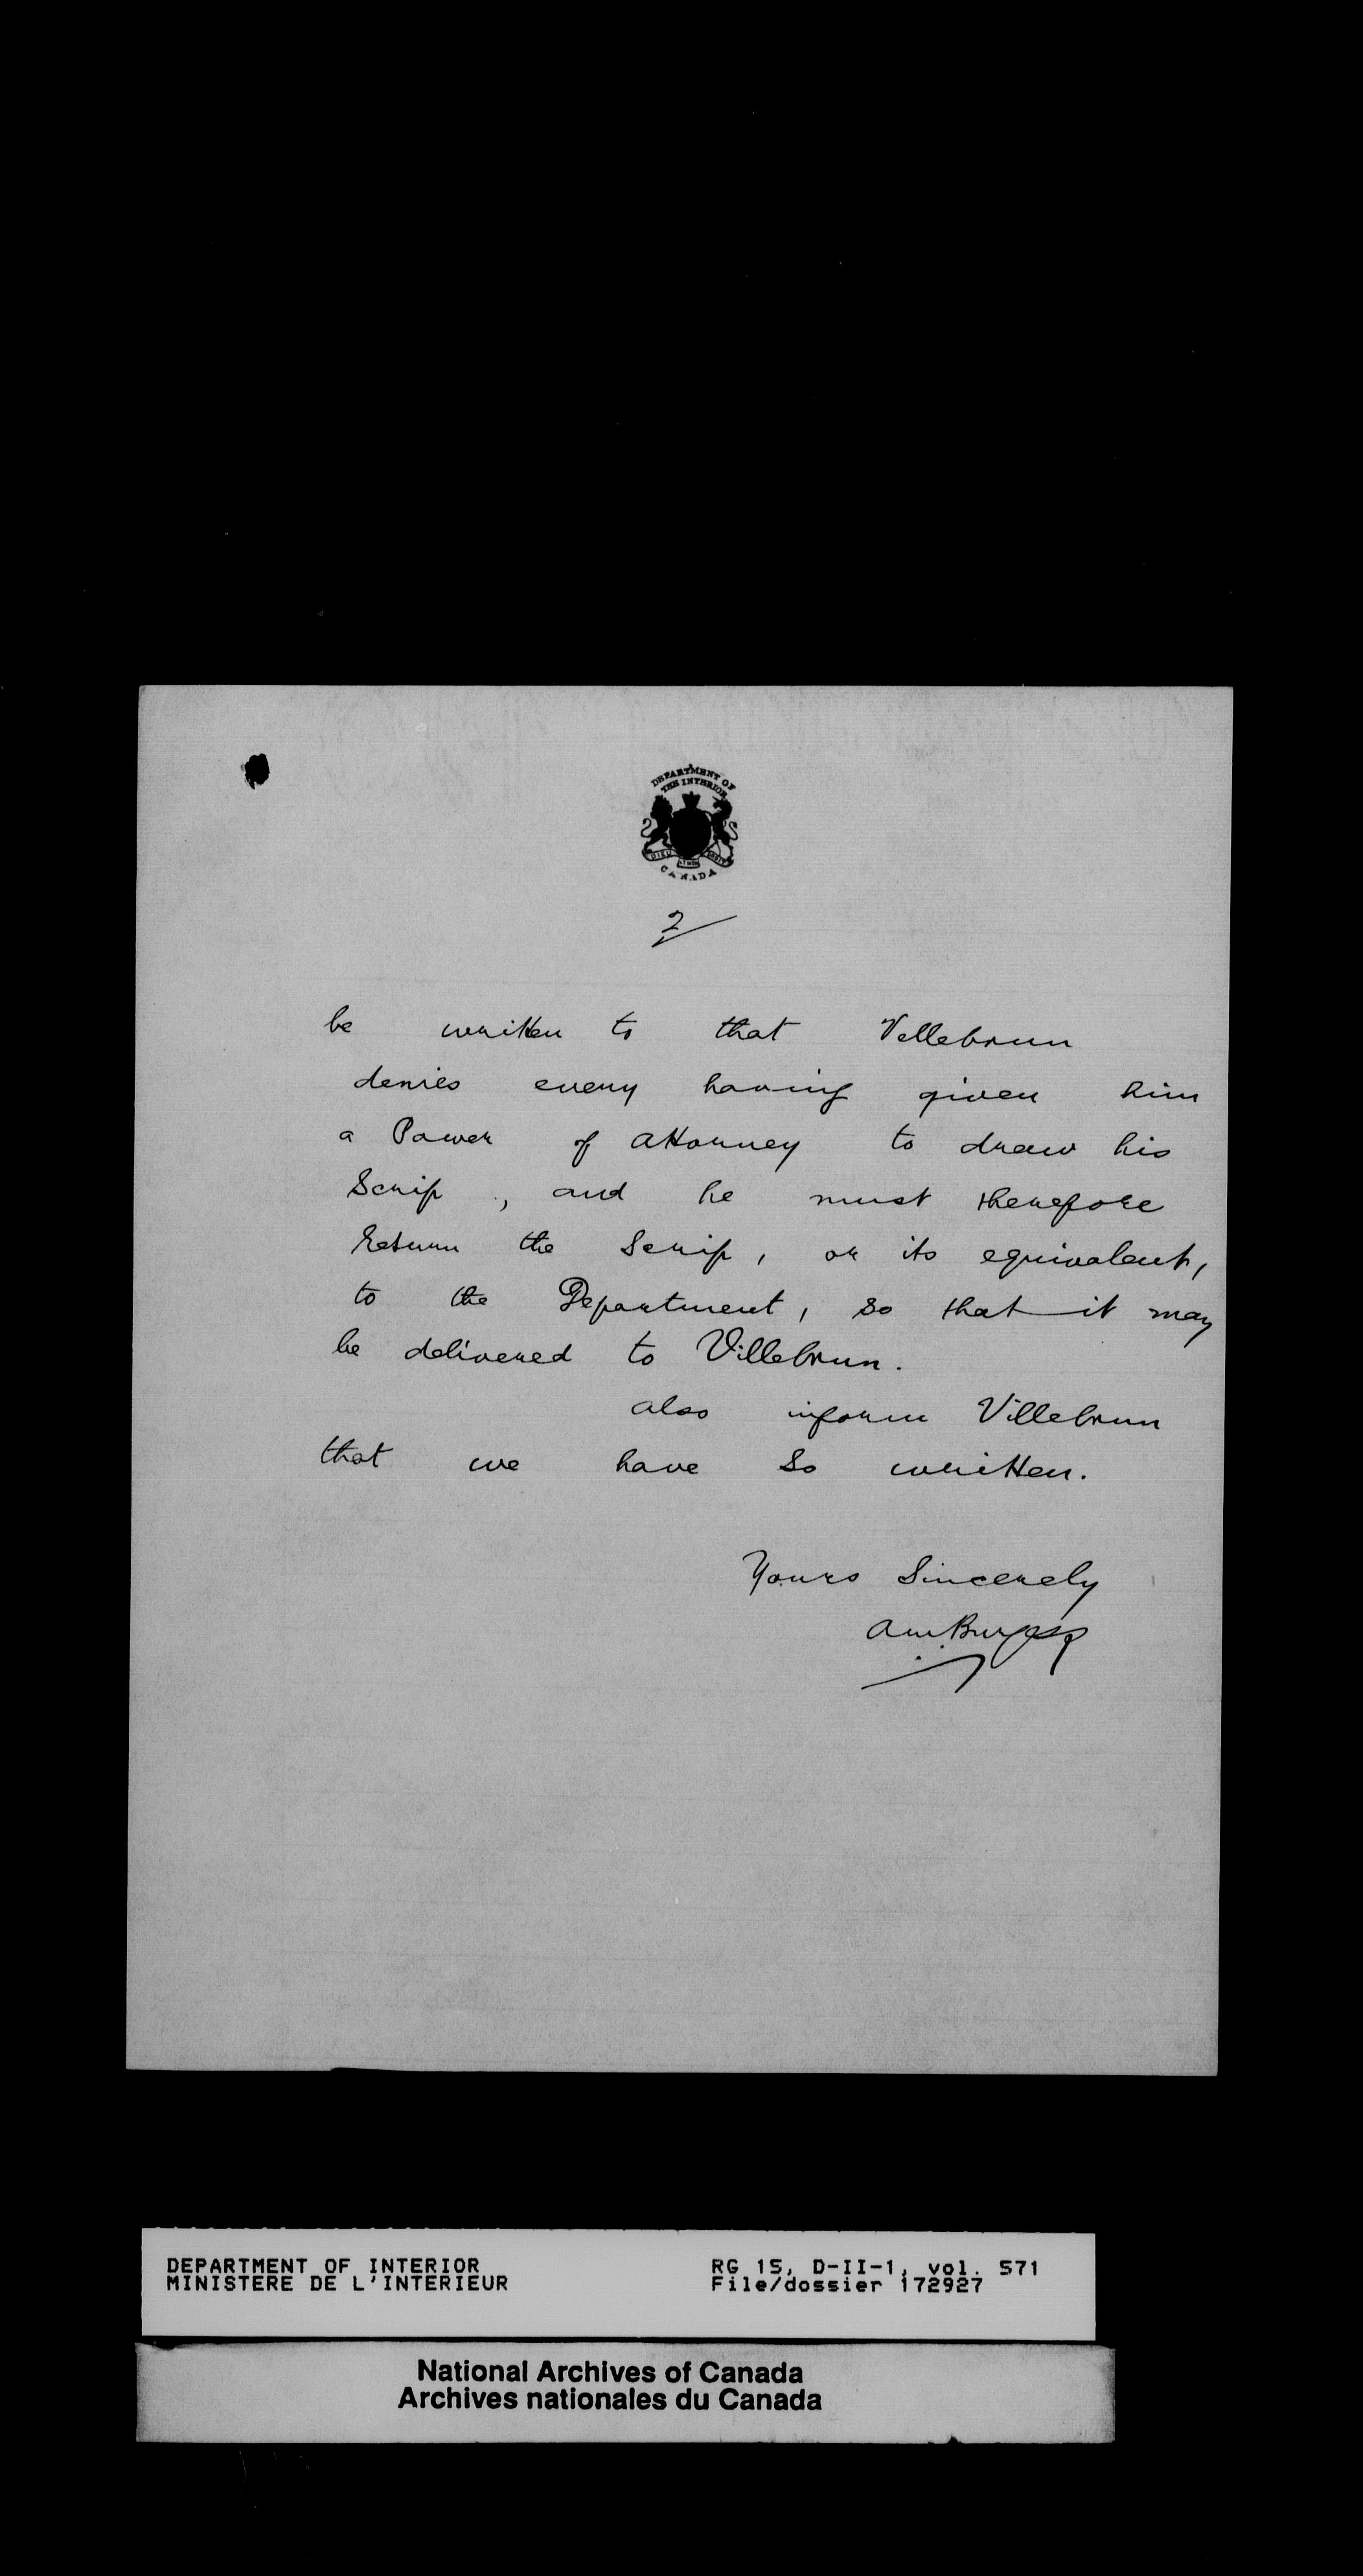 DEPARTMENT OF
THE INTERIOR
DIEU ET MON DROIT
CANADA
2
be written to that Villebrun
denies every having given him
a Power of Attorney to draw his
Scrip, and he must therefore
return the Scrip, or its equivalent,
to the Department, so that it may
be delivered to Villebrun.
also inform Villebrun
that we have so written.
Yours Sincerely
AM Burgess
DEPARTMENT OF INTERIOR RG 15, D-II-1, vol. 571
MINISTERE DE L'INTERIEUR File/dossier 172927
National Archives of Canada
Archives nationales du Canada